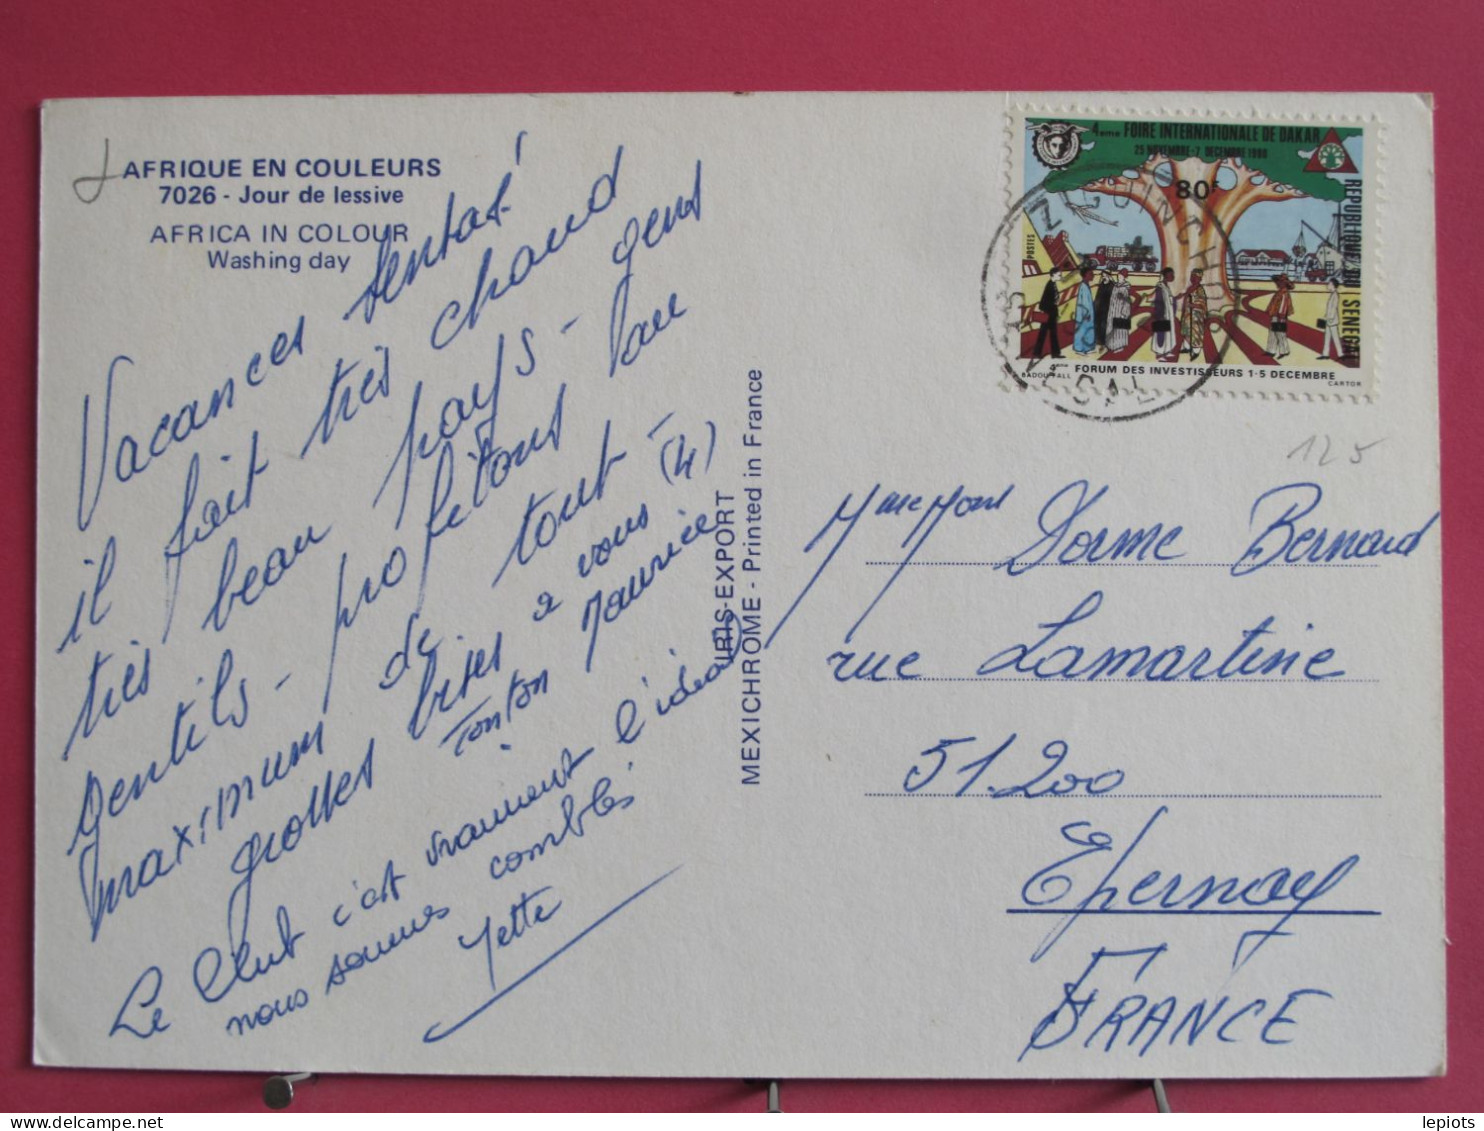 AFRIQUE EN COULEURS
7026 - Jour de lessive
AFRICA IN COLOUR
Washing day
Vacances sensas!
il fait très chaud
très beau pays - gens
gentils - profitons au
maximum de tout -
grosses bises à vous (4)
Tonton Maurice
Le Club c'est vraiment l'idéal
nous sommes comblés
Yette
IRIS-EXPORT
MEXICHROME - Printed in France
4ème FOIRE INTERNATIONALE DE DAKAR
25 NOVEMBRE-7 DECEMBRE 1980
80F
POSTES
REPUBLIQUE DU SENEGAL
4ème FORUM DES INVESTISSEURS 1-5 DECEMBRE
BADOU FALL
CARTOR
ZIGUINCHOR
SENEGAL
125
Mme Mons Dorme Bernard
rue Lamartine
51.200
Epernay
FRANCE
lepiots